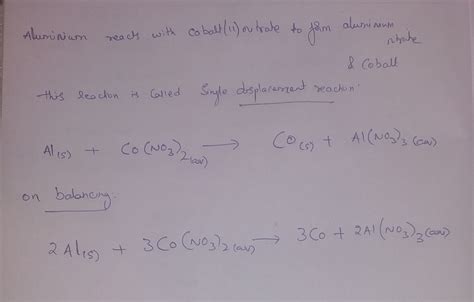 Aluminium reacts with cobalt(11) nitrate to form aluminum nitrate
& Cobalt
this reaction is called Single displacement reaction.
Al(s) + Co(NO3)2(aq) → CO(s) + Al(NO3)3(aq)
on balancing:
2Al(s) + 3Co(NO3)2(aq) → 3Co + 2Al(NO3)3(aq)